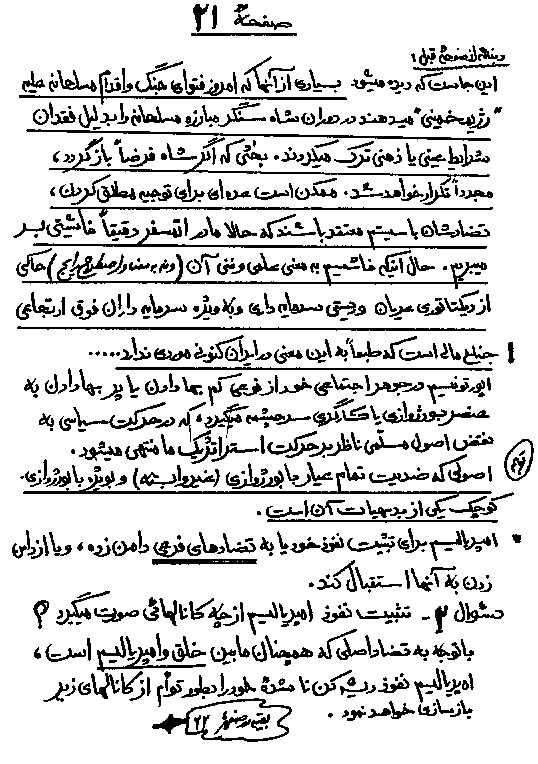 صفحهٔ ۲۱
دنباله از صفحهٔ قبل:
این جاست که دیده میشود بسیاری از آنها که امروز فتوای جنگ و اقدام مسلحانه علیه
"رژیم خمینی" میدهند در دوران شاه سنگر مبارزه مسلحانه را بدلیل فقدان
شرایط عینی یا ذهنی ترک میکردند. بحثی که اگر شاه فرضاً بازگردد،
مجدداً تکرار خواهد شد. ممکن است عده‌ای برای توجیه مطلق کردن،
تضادشان با سیستم معتقد باشند که حالا ما در اتمسفر دقیقاً فاشیستی بسر
میبریم. حال آنکه فاشیسم به معنی علمی و فنی آن (و نه به معنا و اصطلاح رایج) حاکی
از دیکتاتوری عریان و جنگی سرمایه داری و به ویژه سرمایه داران فوق ارتجاعی
جناح مالی است که طبعاً به این معنی در ایران کنونی موردی ندارد.....
اپورتونیسم در جوهر اجتماعی خود از نوعی کم بها دادن یا پر بها دادن به
عنصر بورژوازی یا کارگری سرچشمه میگیرد، که در حرکت سیاسی به
نقض اصول مسلمی ناظر بر حرکت استراتژیک ما منتهی میشود.
اصولی که ضدیت تمام عیار با بورژوازی (ضد وابسته) و بویژه با بورژوازی
کوچک یکی از بدیهیات آن است.
* امپریالیسم برای تثبیت نفوذ خود یا به تضادهای فرعی دامن زده، و یا از دامن
زدن به آنها استقبال کند.
سئوال ۲- تثبیت نفوذ امپریالیسم از چه کانالهائی صورت میگیرد؟
با توجه به تضاد اصلی که همچنان مابین خلق و امپریالیسم است،
امپریالیسم نفوذ ریشه کن نا شدهٔ خود را بطور توأم از کانالهای زیر
بازسازی خواهد نمود.
بقیه در صفحهٔ ۲۲